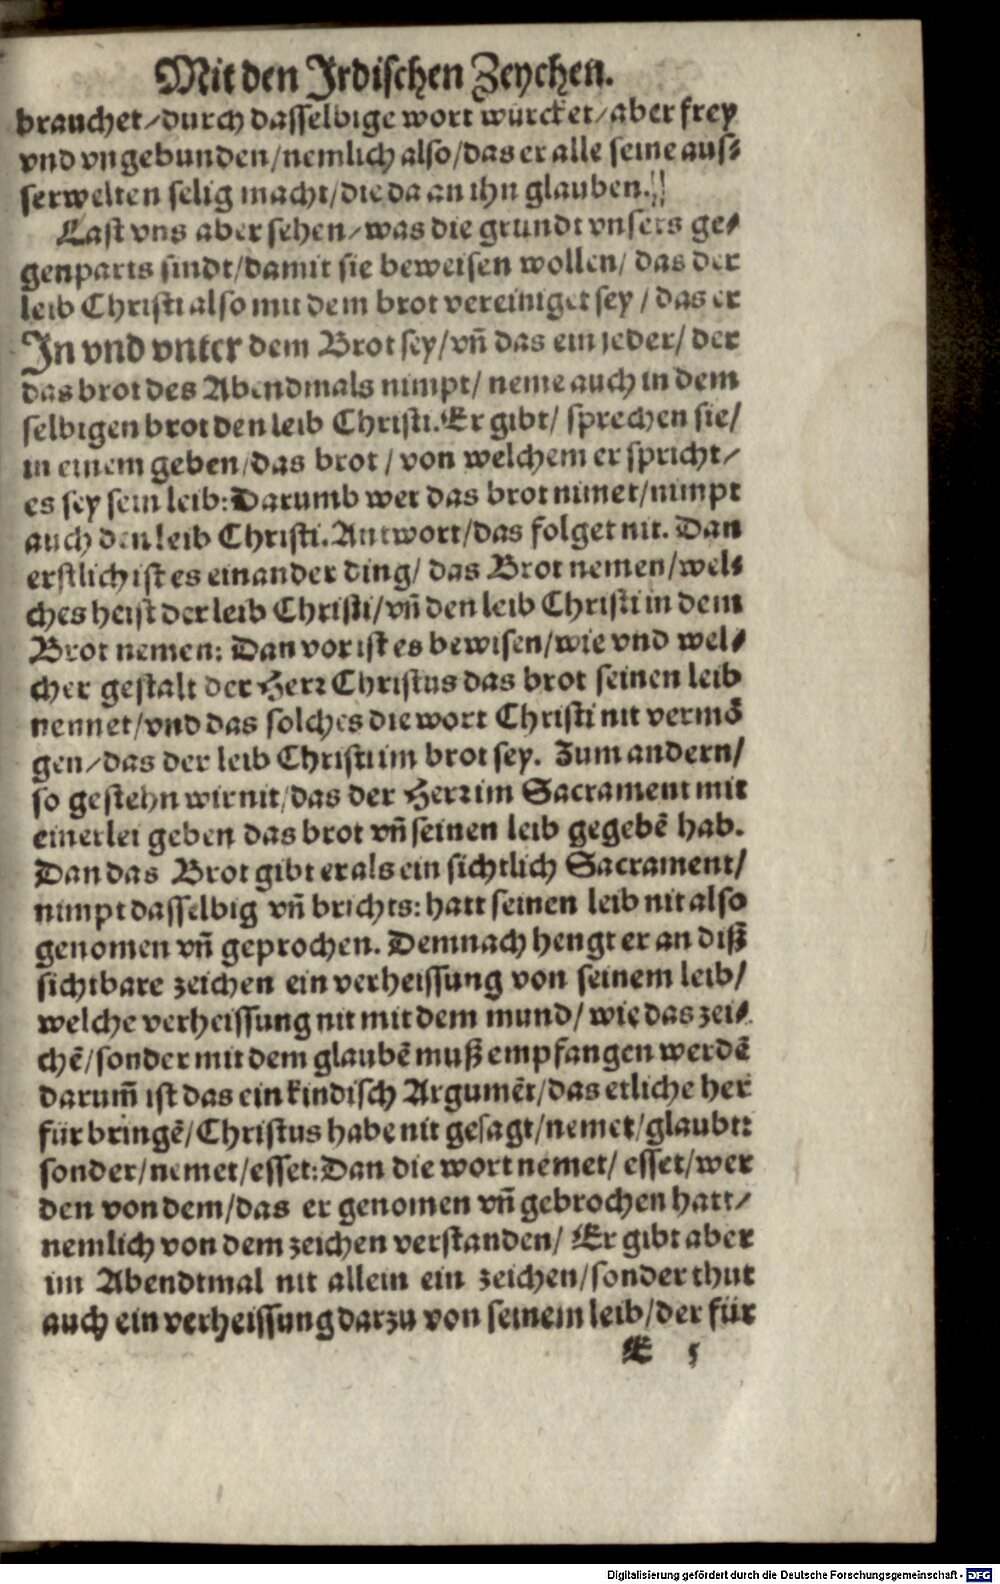 Mit den Irdischen Zeychen.
brauchet/durch dasselbige wort würcket/aber frey
vnd vngebunden/nemlich also/das er alle seine aus⸗
serwelten selig macht/die da an ihn glauben.
Last vns aber sehen/was die grundt vnsers ge⸗
genparts sindt/damit sie beweisen wollen/ das der
leib Christi also mit dem brot vereiniget sey / das er
In vnd vnter dem Brot sey/vñ das ein jeder/ der
das brot des Abendmals nimpt/ neme auch in dem
selbigen brot den leib Christi. Er gibt/ sprechen sie/
in einem geben/das brot / von welchem er spricht/
es sey sein leib: Darumb wer das brot nimet/nimpt
auch den leib Christi. Antwort/das folget nit. Dan
erstlich ist es ein ander ding/ das Brot nemen/wel⸗
ches heist der leib Christi/vñ den leib Christi in dem
Brot nemen: Dan vor ist es bewisen/wie vnd wel⸗
cher gestalt der Herr Christus das brot seinen leib
nennet/vnd das solches die wort Christi nit vermö
gen/das der leib Christi im brot sey. Zum andern/
so gestehn wir nit/das der Herr im Sacrament mit
einerlei geben das brot vñ seinen leib gegebē hab.
Dan das Brot gibt er als ein sichtlich Sacrament/
nimpt dasselbig vñ brichts: hatt seinen leib nit also
genomen vñ geprochen. Demnach hengt er an diß
sichtbare zeichen ein verheissung von seinem leib/
welche verheissung nit mit dem mund/ wie das zei⸗
chē/sonder mit dem glaubē muß empfangen werdē
darum̃ ist das ein kindisch Argumēt/das etliche her
für bringē/Christus habe nit gesagt/nemet/glaubt:
sonder/nemet/esset: Dan die wort nemet/ esset/wer
den von dem/das er genomen vñ gebrochen hatt/
nemlich von dem zeichen verstanden/ Er gibt aber
im Abendtmal nit allein ein zeichen/sonder thut
auch ein verheissung darzu von seinem leib/der für
E 5
Digitalisierung gefördert durch die Deutsche Forschungsgemeinschaft - DFG